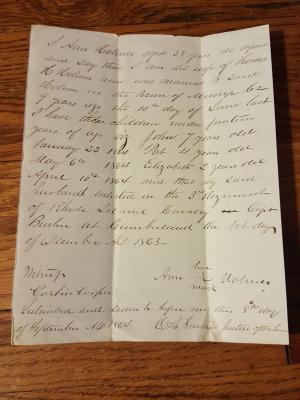 I Ann Holmes aged 38 years do depose
and say that I am the wife of Thomas
H Holmes and was married to said
Holmes in the town of
9 years ago the 10th day of June last
I have three children under fourteen
years of age viz John 7 years old
January 23 1864 4 years old
May 6th 1864 Elizabeth 2 years old
April 10th 1864 and that my said
husband enlisted in the 3d Regiment
of Rhode Island Cavalry Capt
at Cumberland the 1st day
of December AD 1863 —
Witness her
Ann X Holmes
Cooper mark
Subscribed and sworn to before me this 8th day
of September AD 1864 Justice of the Peace